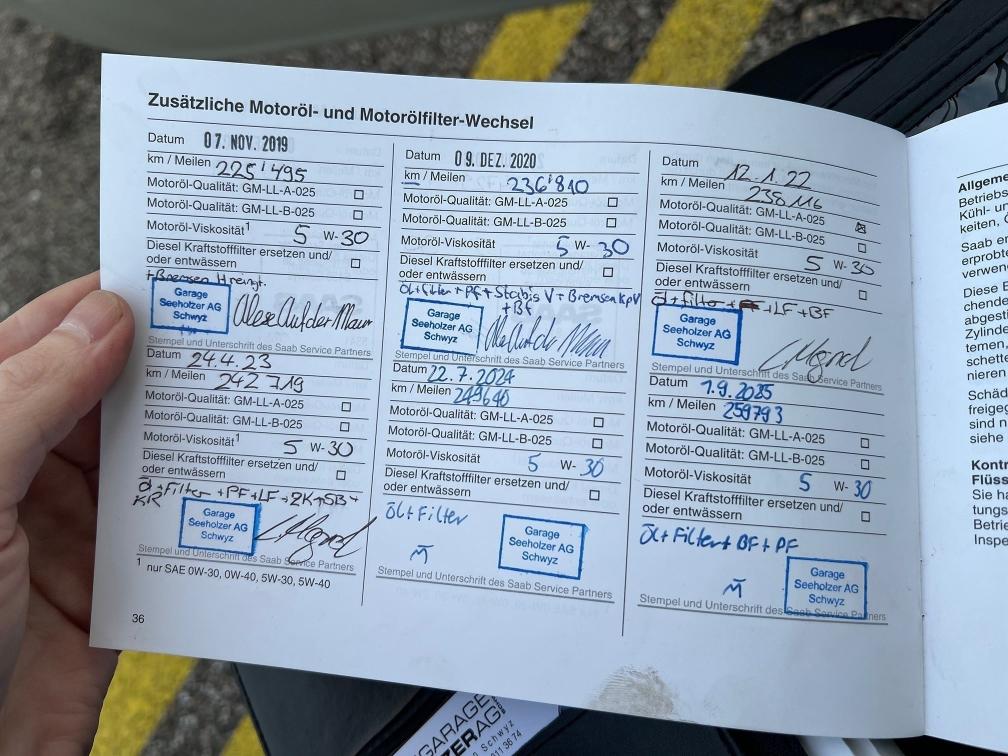 Zusätzliche Motoröl- und Motorölfilter-Wechsel
Datum 07. NOV. 2019
km / Meilen 225'495
Motoröl-Qualität: GM-LL-A-025
Motoröl-Qualität: GM-LL-B-025
Motoröl-Viskosität¹ 5 W-30
Diesel Kraftstofffilter ersetzen und/
oder entwässern
+Bremsen H reingt.
Garage
Seeholzer AG
Schwyz
Stempel und Unterschrift des Saab Service Partners
Datum 09. DEZ. 2020
km / Meilen 236'810
Motoröl-Qualität: GM-LL-A-025
Motoröl-Qualität: GM-LL-B-025
Motoröl-Viskosität 5 W- 30
Diesel Kraftstofffilter ersetzen und/
oder entwässern
Öl+filter + PF + Stabis V + Bremsen kpl V
+ BF
Garage
Seeholzer AG
Schwyz
Stempel und Unterschrift des Saab Service Partners
Datum 12.1.22
km / Meilen 238116
Motoröl-Qualität: GM-LL-A-025
Motoröl-Qualität: GM-LL-B-025
Motoröl-Viskosität 5 W-30
Diesel Kraftstofffilter ersetzen und/
oder entwässern
Öl+filter + LF + BF
Garage
Seeholzer AG
Schwyz
Stempel und Unterschrift des Saab Service Partners
Datum 24.4.23
km / Meilen 242719
Motoröl-Qualität: GM-LL-A-025
Motoröl-Qualität: GM-LL-B-025
Motoröl-Viskosität¹ 5 W-30
Diesel Kraftstofffilter ersetzen und/
oder entwässern
Öl+Filter +PF+LF+ZK+SB+
KR
Garage
Seeholzer AG
Schwyz
Stempel und Unterschrift des Saab Service Partners
Datum 22.7.2024
km / Meilen 249640
Motoröl-Qualität: GM-LL-A-025
Motoröl-Qualität: GM-LL-B-025
Motoröl-Viskosität 5 W- 30
Diesel Kraftstofffilter ersetzen und/
oder entwässern
Öl+Filter
Garage
Seeholzer AG
Schwyz
Stempel und Unterschrift des Saab Service Partners
Datum 1.9.2025
km / Meilen 259793
Motoröl-Qualität: GM-LL-A-025
Motoröl-Qualität: GM-LL-B-025
Motoröl-Viskosität 5 W- 30
Diesel Kraftstofffilter ersetzen und/
oder entwässern
Öl+Filter+ BF + PF
Garage
Seeholzer AG
Schwyz
Stempel und Unterschrift des Saab Service Partners
¹ nur SAE 0W-30, 0W-40, 5W-30, 5W-40
36
Allgeme
Betriebs
Kühl- un
keiten, 
Saab e
erprobte
verwen
Diese E
chende
abgesti
Zylind
temen,
schett
nieren
Schäd
freigeg
sind n
siehe
Kont
Flüss
Sie ha
tungs
Betrie
Inspe
GARAGE
ZERAG
Schwyz
11 36 74